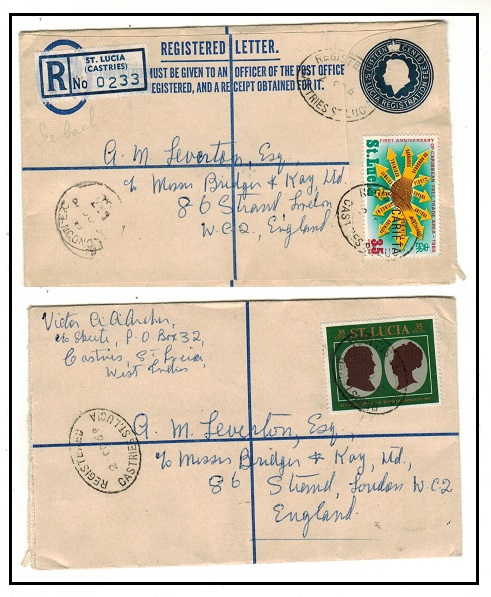 ST. LUCIA
(CASTRIES)
R No 0233
REGISTERED LETTER.
MUST BE GIVEN TO AN OFFICER OF THE POST OFFICE
REGISTERED, AND A RECEIPT OBTAINED FOR IT.
FIFTEEN CENTS
ST. LUCIA REGISTRATION
REGISTERED
CASTRIES ST. LUCIA
See back
A. M. Leverton, Esq.,
c/o Messrs Bridger & Kay, Ltd.
86 Strand London
W.C.2, England.
FIRST ANNIVERSARY
St. Lucia
CARIFTA
35c
LONDON
Victor A. A. Archer,
P.O Box 32,
Castries, St Lucia,
West Indies
35 ST. LUCIA 35
REGISTERED
CASTRIES ST. LUCIA
A. M. Leverton, Esq.,
c/o Messrs Bridger & Kay, Ltd.,
86 Strand, London W.C.2
England.